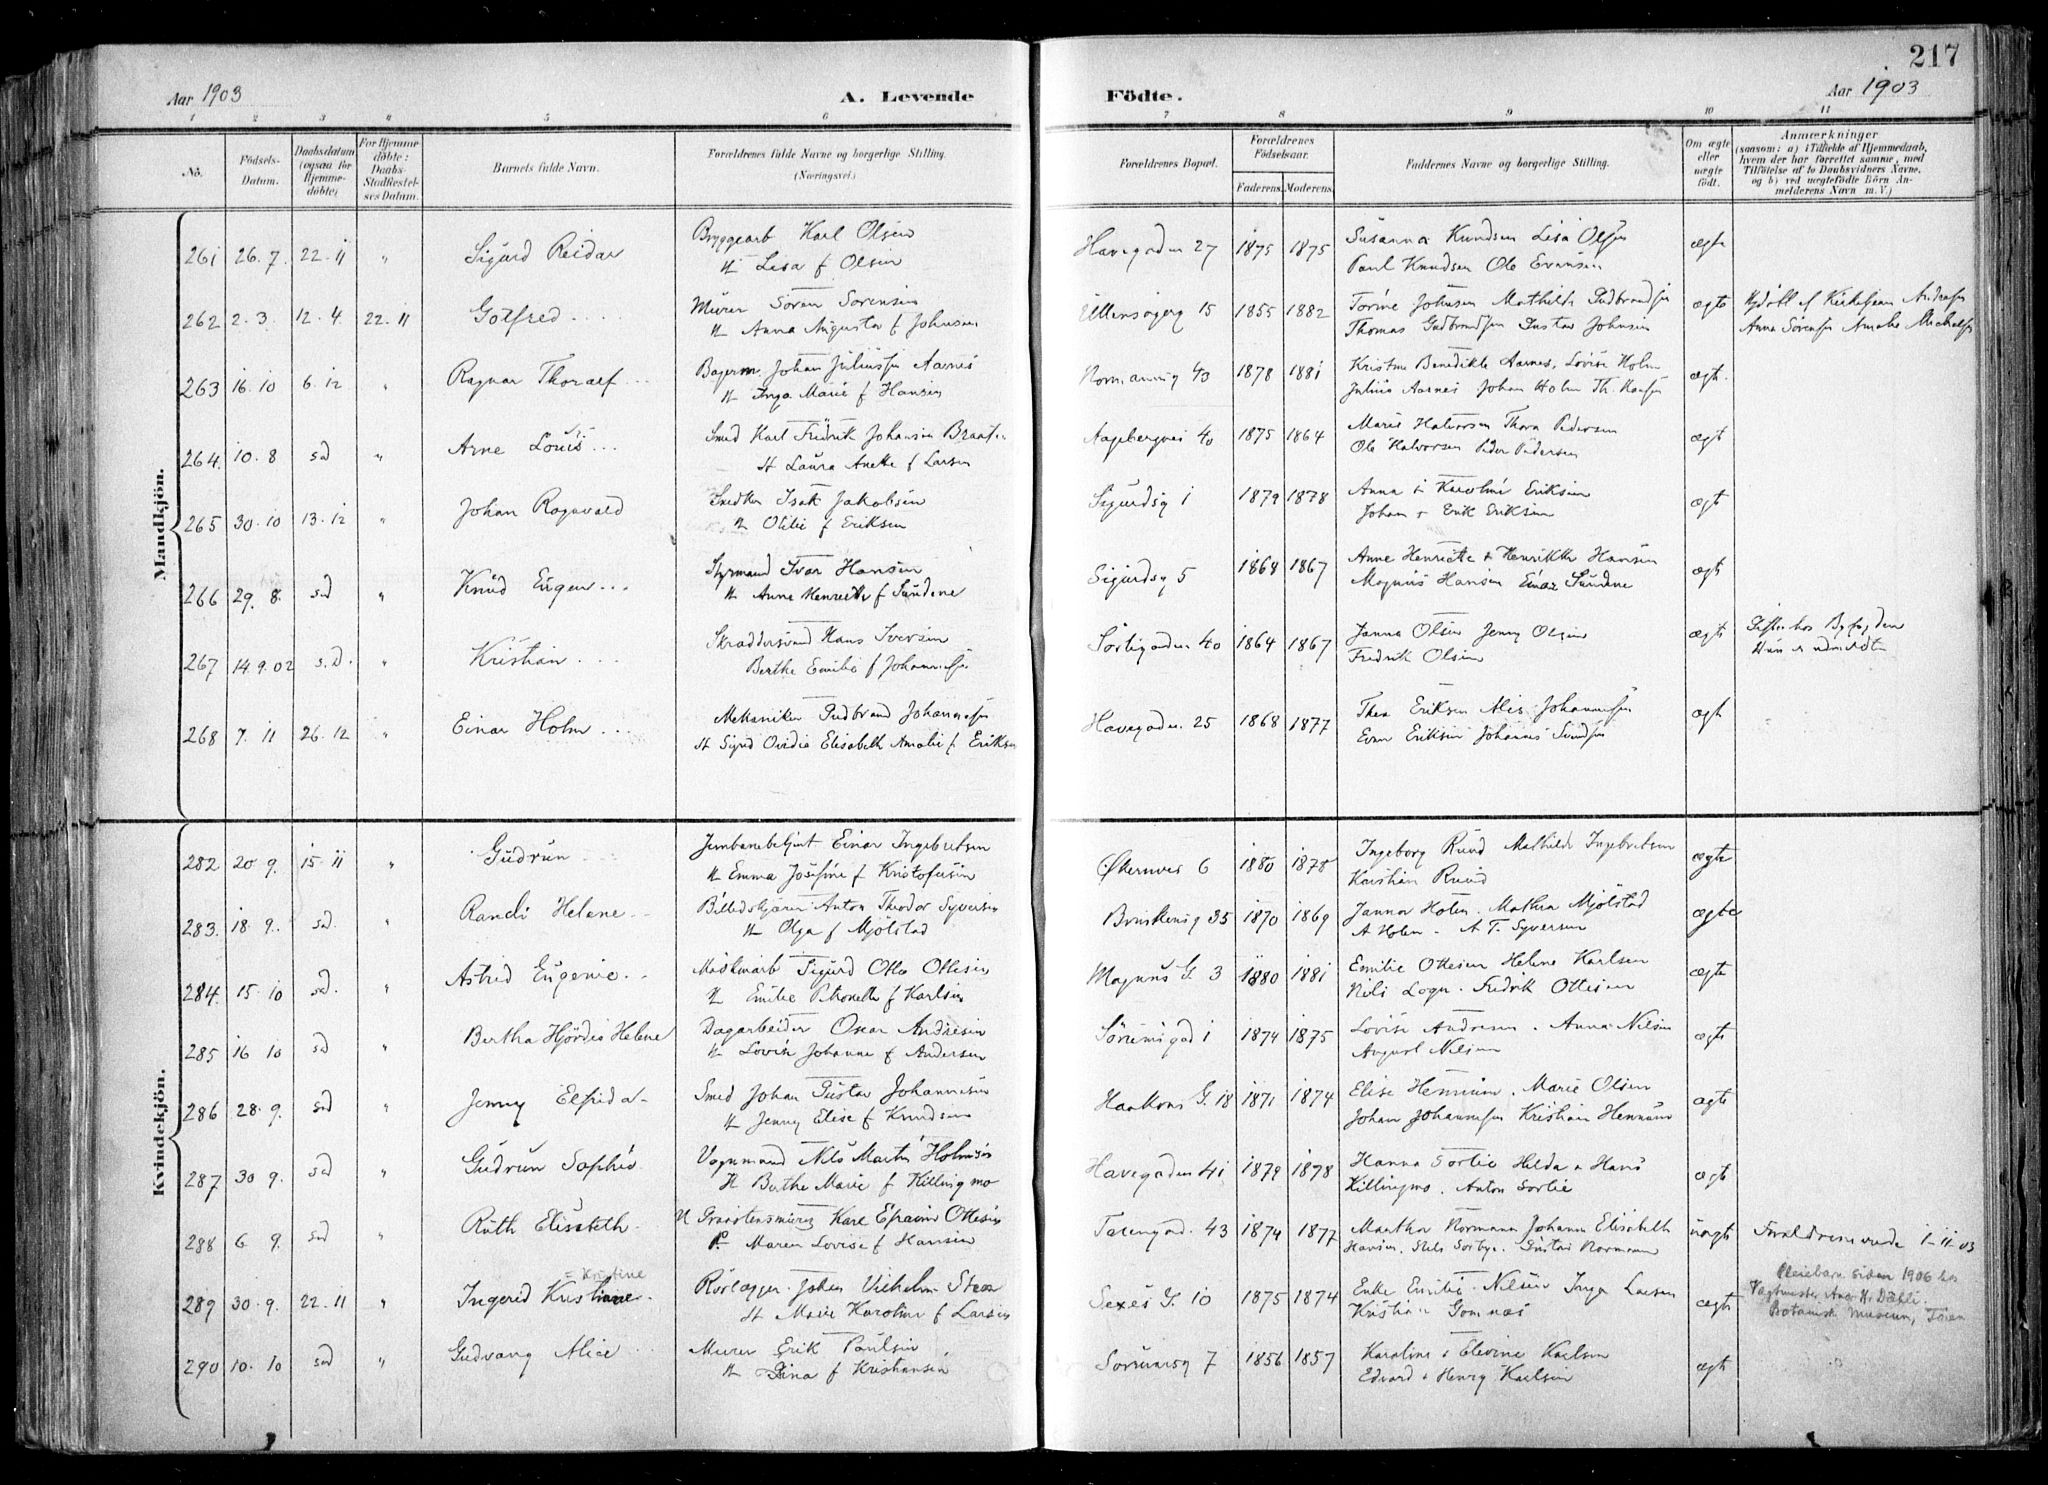 217
Aar 1903
A. Levende
Födte.
Aar 1903
1 2 3 4 5 6 7 8 9 10 11
No.
Födsels-Datum.
Daabsdatum (ogsaa for Hjemmedöbte)
For Hjemmedöbte: Daabs-Stadfæstelses Datum.
Barnets fulde Navn.
Forældrenes fulde Navne og borgerlige Stilling. (Næringsvei.)
Forældrenes Bopæl.
Forældrenes Födselsaar.
Faderens. Moderens.
Faddernes Navne og borgerlige Stilling.
Om ægte eller uægte födt.
Anmærkninger
(saasom: a) i Tilfælde af Hjemmedaab, hvem der har forrettet samme, med Tilföielse af to Daabsvidners Navne, og b) ved uægtefödte Börn Anmelderens Navn m. V.)
Mandkjön.
261 26.7. 22.11 " Sigurd Reidar Bryggearb Karl Olsen Havegaden 27 1875 1875 Susanna Knudsen Lisa Olsen ægte
H Lisa f Olsen Paul Knudsen Ole Evensen
262 2.3. 12.4 22.11 Gotfred Murer Sören Sorensen Ullensagerg 15 1855 1882 Torine Johnsen Mathilde Gudbrandsen ægte
H Anna Augusta f Johnsen Thomas Gudbrandsen Gustav Johnsen Anna Sörensen Amalie
263 16.10 6.12 " Ragnar Thoralf Bagerm. Johan Juliussen Aarnes Normannsg 43 1878 1881 Kristine Benedikte Aarnes, Lovise Holm ægte
H Inga Marie f Hansen Julius Aarnes Johan Holm Th. Hansen
264. 10.8 sd " Arne Louis Smed Karl Fredrik Johansen Aagebergvei 40 1875 1864 Marie Halvorsen Thora Pedersen ægt
H Laura Anette f Larsen Ole Halvorsen Peder Pedersen
265 30.10 13.12 " Johan Ragnvald Snedker Isak Jakobsen Sigurdsg 1 1879 1878 Anna & Karoline Eriksen ægt
H Otilie f Eriksen Johan & Erik Eriksen
266 29.8. sd " Knud Eugen Styrmand Ivar Hansen Sigurdsg 5 1864 1867 Anne Henriette & Henrikke Hansen ægte
H Anne Henriette f Sundene Magnus Hansen Einar Sundene
267 14.9.02 s.d. " Kristian Skræddersvend Hans Iversen Sörligaden 40 1864 1867 Janna Olsen Jenny Olsen ægte
Berthe Emilie f Johannesen Fredrik Olsen Hun er udmeldt
268 7.11 26.12 " Einar Holm Mekaniker Gudbrand Johannesen Havegaden 25 1868 1877 Thea Eriksen Alis Johannesen ægt
H Sigrid Ovidia Elisabeth Amalie f Eriksen Even Eriksen Johannes Svendsen
Kvindekjön.
282 20.9. 15.11 " Gudrun Jernbanebetjent Einar Ingebretsen Økernvei 6 1880 1878 Ingeborg Ruud Mathilde Ingebretsen ægte
H Emma Josefine f Kristofersen Kristian Ruud
283. 18.9. sd. " Randi Helene Billedskjærer Anton Theodor Syversen Brinkensg 35 1870 1869 Janna Holen. Mathea Mjölstad ægte
H Olga f Mjölstad A Holen - A T. Syversen
284. 15.10 sd. " Astrid Eugenie Maskinarb Sigurd Otto Ottesen Magnus G. 3 1880 1881 Emilie Ottesen Helene Karlsen ægte
H Emilie Petronelle f Karlsen Nils Logn. Fredrik Ottesen
285 16.10 sd " Bertha Hjördis Helene Dagarbeider Oscar Andresen Sörumsgad 1 1874 1875 Lovise Andresen. Anna Nilsen ægte
H Lovise Johanne f Andersen August Nilsen
286 28.9. sd " Jenny Elfrida Smed Johan Gustav Johannesen Haakons G. 18 1871 1874 Elise Hennum. Marie Olsen ægte
H Jenny Elise f Knudsen Johan Johannesen Kristian Hennum
287 30.9. sd " Gudrun Sophie Vognmand Nils Martin Holmsen Havegaden 41 1879 1878 Hanna Sorlie Hilda & Hans ægt
H Berthe Marie f Killingmo Killingmo. Anton Sorlie
288 6.9. sd " Ruth Elisabeth Graastensmurer Karl Efraim Ottesen Töiengad. 43 1874 1877 Martha Normann Johanne Elisabeth uægte Forældrene viede 1-11-03
P. Maren Lovise f Hansen Hansen. Nils Sorbye. Gustav Normann
289 30.9. 22.11 " Ingerid Kristiane = Kristine Rörlægger Johan Vilhelm Steen Sexes G. 10 1875 1874 Enke Emilie Nilsen Inga Larsen ægte Pleiebarn siden 1906 hos
H Marie Karoline f Larsen Kristian Gomnæs Vagtmester Dæhli. Botanisk Museum, Töien
290 10.10 sd " Gudvang Alice Murer Erik Paulsen Sorumsg 7 1856 1857 Karoline & Elevine Karlsen ægt
H Dina f Kristiansen Edvard & Henry Karlsen